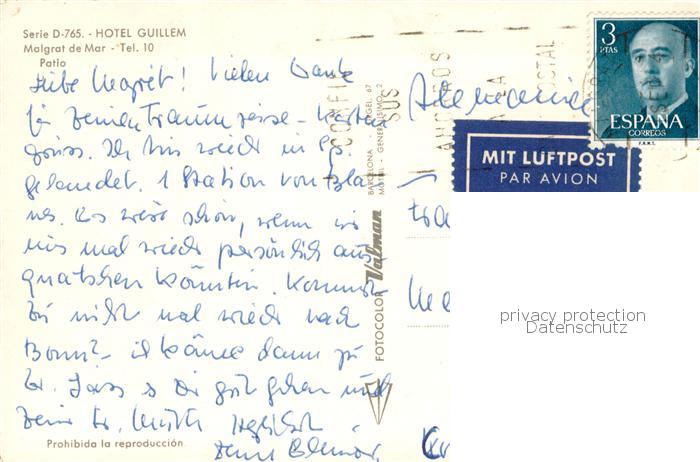 Serie D-765. - HOTEL GUILLEM
Malgrat de Mar - Tel. 10
Patio
Liebe Margret! Vielen Dank
für Deinen Traumreise-Karten
gruss. Ich bin wieder in Sp.
gelandet. 1 Station von Bla
nes. Es wäre schön, wenn wir
uns mal wieder persönlich aus
quatschen könnten. Kommst
Du nicht mal wieder nach
Bonn? - ich käme dann zu
Dir. Lass es Dir gut gehen und
Deine Mutter herzlichst
Deine
Prohibida la reproducción
FOTOCOLOR Valman
BARCELONA - ANGEL, 67
MOTRIL - GENERALISIMO, 2
Alemania
3 PTAS
ESPAÑA
CORREOS
F.N.M.T.
MIT LUFTPOST
PAR AVION
privacy protection
Datenschutz